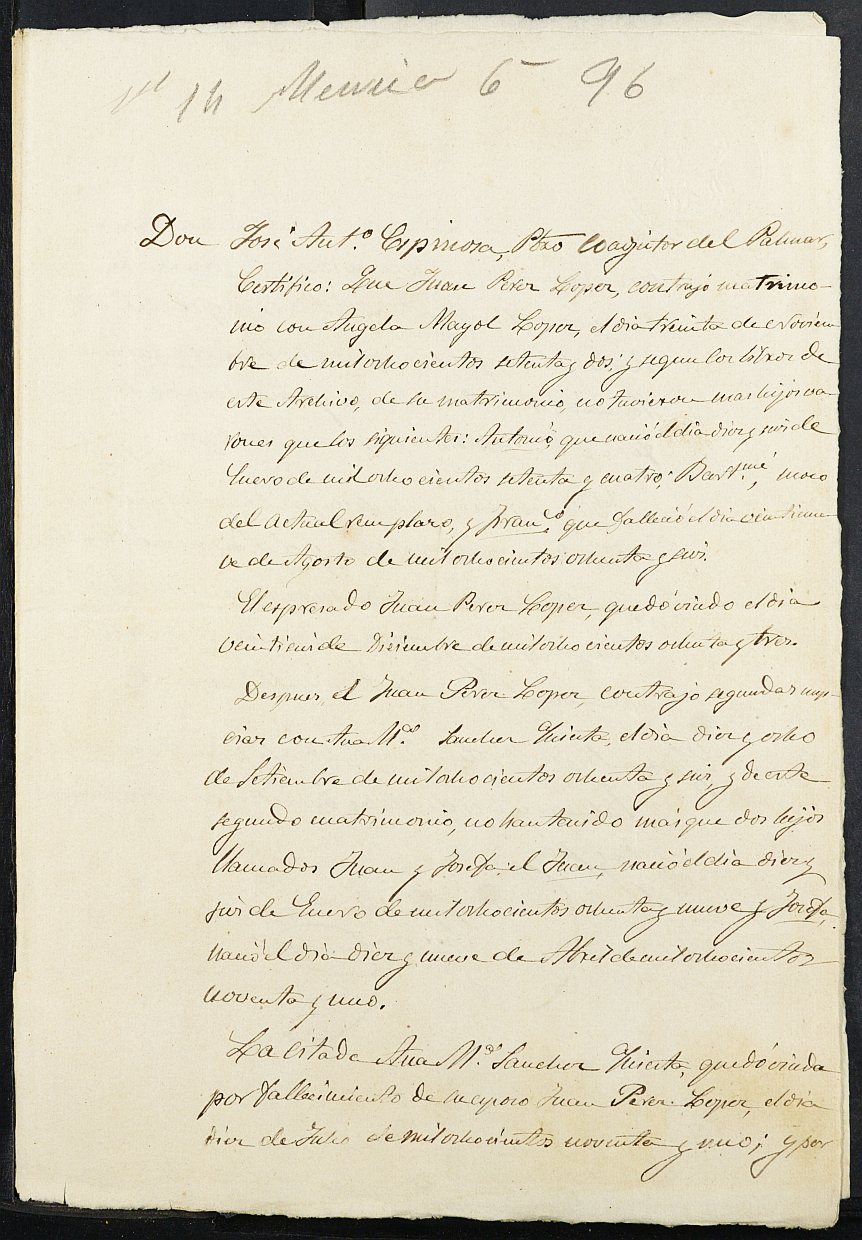 14 Murcia 6 96
Don José Ant.º Espinosa, Pbro Coadjutor del Palmar,
Certifico: Que Juan Perez Lopez, contrajo matrimo-
nio con Angela Mayol Lopez, el dia treinta de Noviem
bre de mil ochocientos setenta y dos; y segun los libros de
este Archivo, de su matrimonio, no tuvieron mas hijos va
rones que los siguientes: Antonio, que nació el dia diez y seis de
Enero de mil ochocientos setenta y cuatro; Bart.mé, mozo
del actual remplazo, y Fran.co que falleció el dia veintinue
ve de Agosto de mil ochocientos ochenta y seis.
El espresado Juan Perez Lopez, quedó viudo el dia
veintiseis de Diciembre de mil ochocientos ochenta y tres.
Despues, el Juan Perez Lopez, contrajo segundas nup-
cias con Ana M.ª Sanchez el dia diez y ocho
de Setiembre de mil ochocientos ochenta y seis, y de este
segundo matrimonio, no han tenido más que dos hijos
llamados Juan y Josefa, el Juan, nació el dia diez y
seis de Enero de mil ochocientos ochenta y nueve y Josefa,
nació el dia diez y nueve de Abril de mil ochocientos
noventa y uno.
La citada Ana M.ª Sanchez quedó viuda
por fallecimiento de su esposo Juan Perez Lopez, el dia
diez de Julio de mil ochocientos noventa y uno; y por